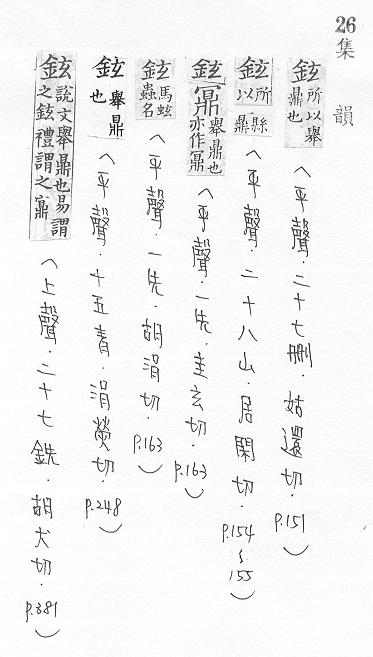 26 集韻
鉉 所以舉鼎也(平聲．二十七刪．姑還切．P.151)
鉉 所以縣鼎(平聲．二十八山．居閑切．P.154~155)
鉉 鼏 舉鼎也亦作鼏(平聲．一先．圭玄切．P.163)
鉉 馬蚿蟲名(平聲．一先．胡涓切．P.163)
鉉 舉鼎也(平聲．十五青．涓熒切．P.248)
鉉 說文舉鼎也易謂之鉉禮謂之鼏(上聲．二十七銑．胡犬切．P.381)